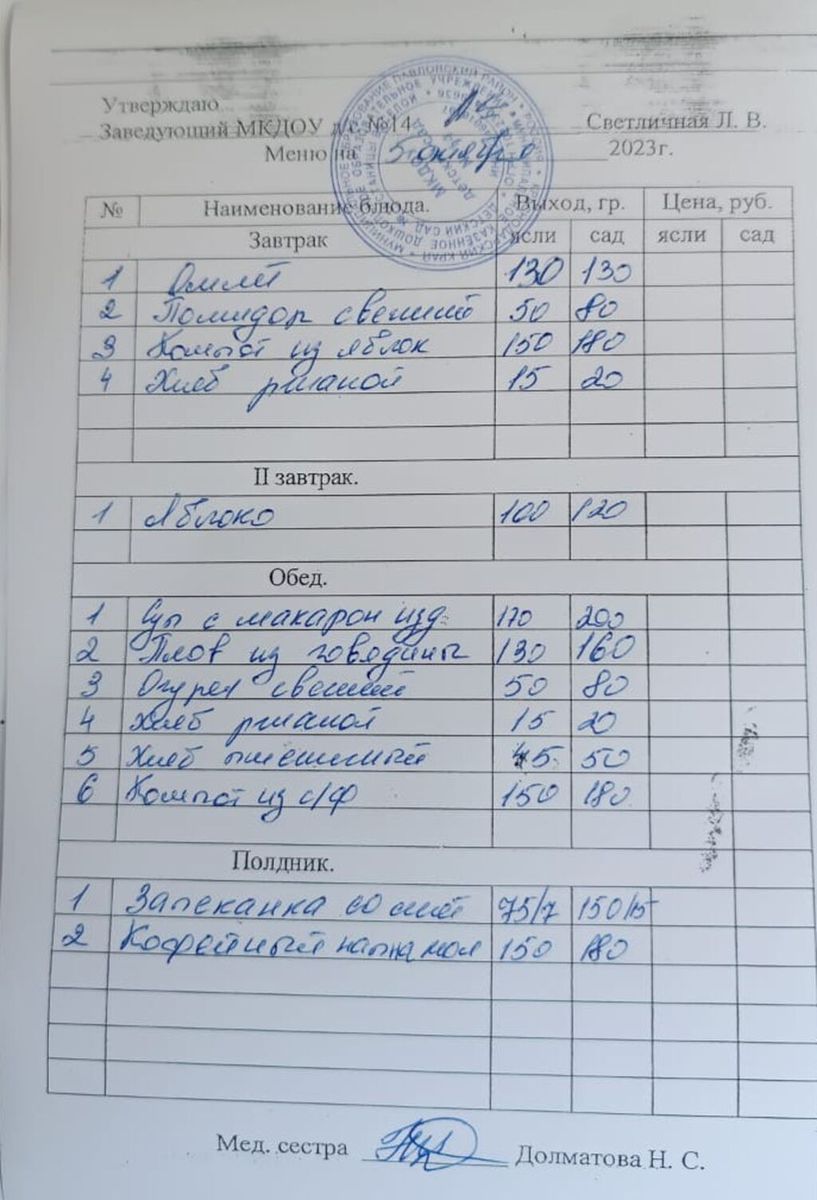 Утверждаю
Заведующий МКДОУ д/с №14 Светличная Л. В.
Меню на 5 октября 2023г.
№ Наименование блюда. Выход, гр. Цена, руб.
Завтрак ясли сад ясли сад
1 Омлет 130 130
2 Помидор свежий 50 80
3 Компот из яблок 150 180
4 Хлеб ржаной 15 20
II завтрак.
1 Яблоко 100 120
Обед.
1 Суп с макарон изд. 170 200
2 Плов из говядины 130 160
3 Огурец свежий 50 80
4 Хлеб ржаной 15 20
5 Хлеб пшеничный 45 50
6 Компот из с/ф 150 180
Полдник.
1 Запеканка со смет 75/7 150/15
2 Кофейный нап на мол 150 180
Мед. сестра Долматова Н. С.